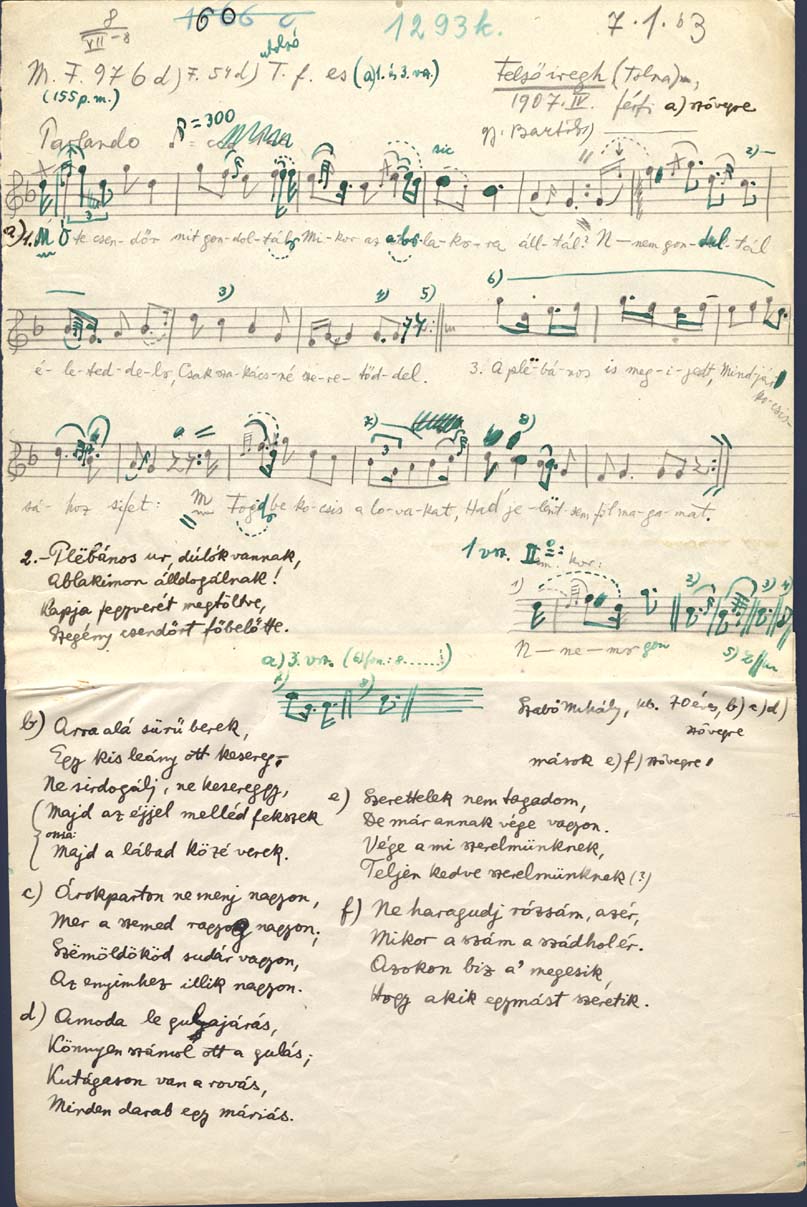 8
VII-8
1293k.
7.1.63
M. F. 976 d) F. 54 d) T. f. es (a) 1. és 3. va.)
utolsó
(155 p.m.)
Felsőiregh (Tolna) m,
1907. IV. férfi a) szövegre
gy. Bartók
Parlando = 300
sic
2)
a) 1. Te csen- dőr mit gon- dol- Mi- kor az ab- la- ko- ra áll- tál? N- nem gon- dol- tál
3) 4) 5) 6)
é- le- ted- de- Csak sza- kács- né sze- re- tőd- del. 3. A plë- bá- nos is meg- i- jedt, Mind- já
ko- csis-
2) 3)
sá- hoz si- et: Fogd be ko- csis a lo- va- kat, Had' je- lönt- sem föl ma- ga- mat.
2.- Plëbános ur, dúlók vannak,
Ablakimon álldogálnak!
Kapja fegyverét megtöltve,
Szegény csendőrt főbelőtte.
1 vsz. II
1) 2) 3) 4)
N- ne- m gon
5)
a) 3. vsz.
b) Arra alá sürü berek,
Egy kis leány ott kesereg,
Ne sirdogálj, ne keseregj,
Majd az éjjel melléd fekszek
ossia:
Majd a lábad közé verek.
c) Árokparton ne menj nagyon,
Mer a szemed ragyog nagyon;
Szëmöldököd sudár vagyon,
Az enyimhez illik nagyon.
d) Amoda le gulyajárás,
Könnyen számol ott a gulás;
Kutágason van a rovás,
Minden darab egy máriás.
Szabó Mihály, kb. 70 éves, b) c) d)
szövegre
mások e) f) szövegre
e) Szerettelek nem tagadom,
De már annak vége vagyon.
Vége a mi szerelmünknek,
Teljen kedve szerelmünknek (?)
f) Ne haragudj rózsám, azér,
Mikor a szám a szádhol ér.
Azokon biz a' megesik,
Hogy akik egymást szeretik.